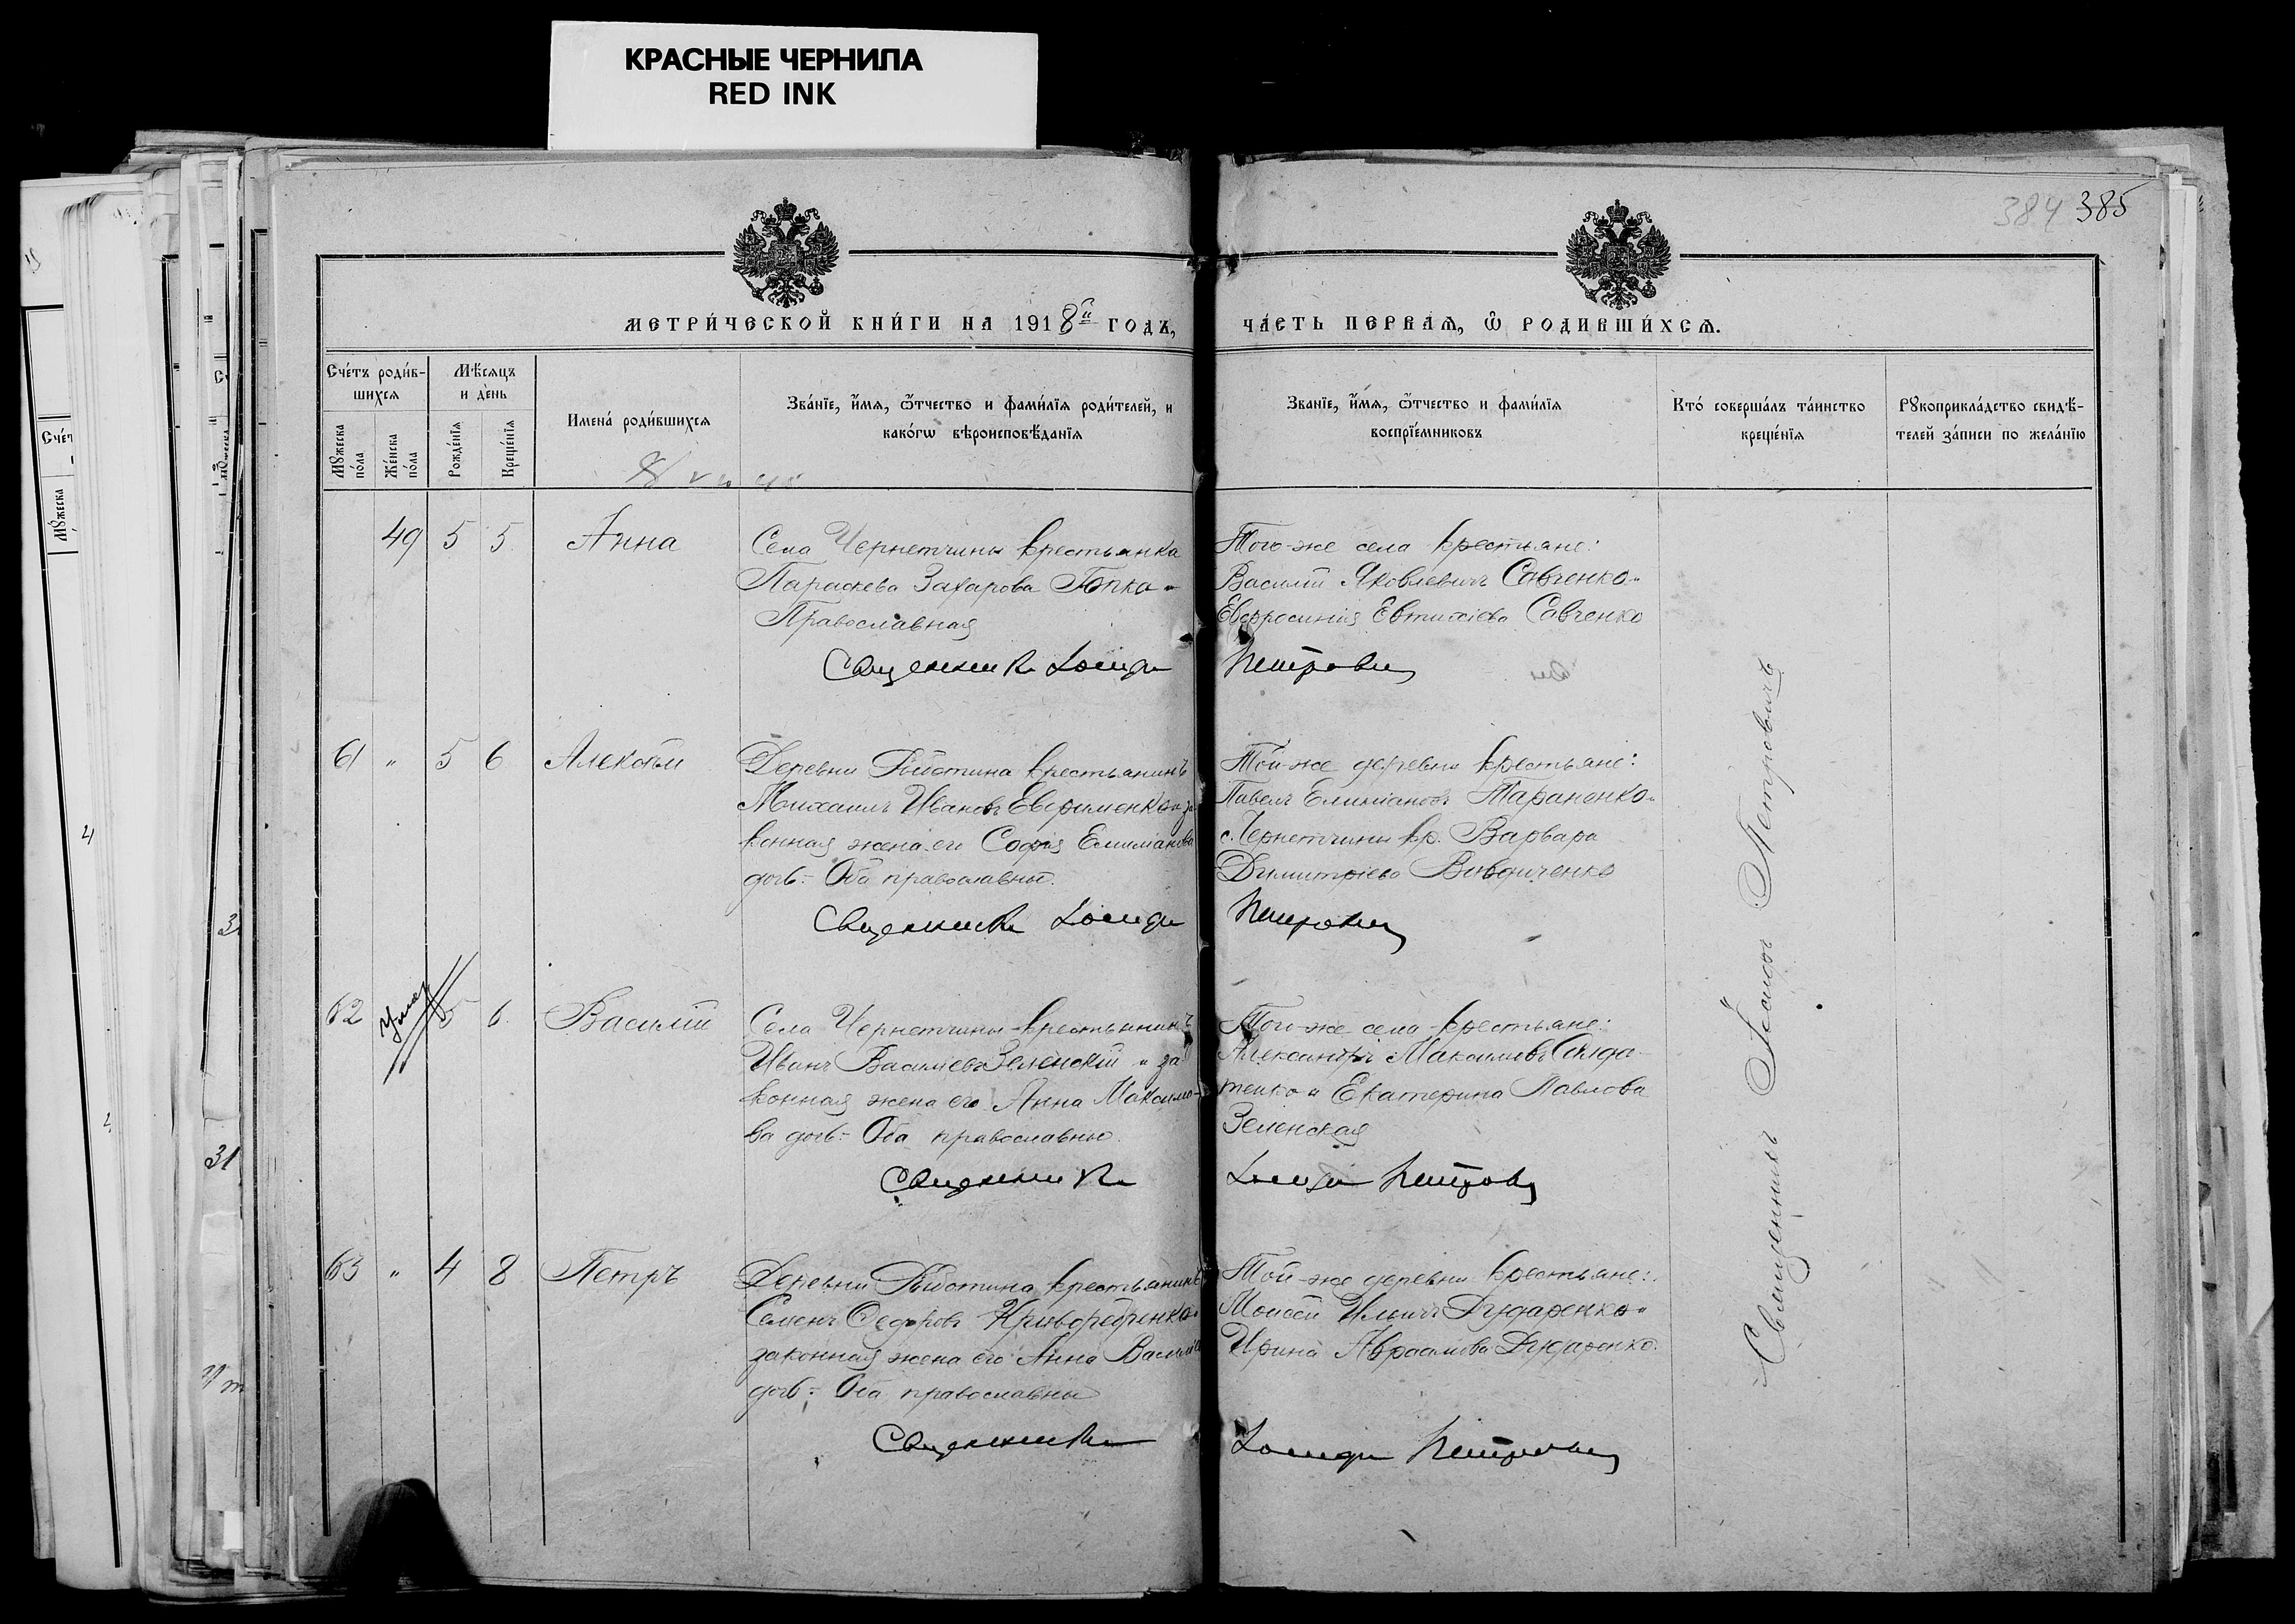 КРАСНЫЕ ЧЕРНИЛА
RED INK
384 385
МЕТРИ́ЧЕСКОЙ КНИ́ГИ НА 1918й ГОДЪ,
ЧА́СТЬ ПЕРВАѦ, Ѡ҆ РОДИВШИ́ХСѦ.
Сче́тъ роди́в-
шихсѧ
Мꙋ́жеска по́ла
Же́нска по́ла
Мѣ́сѧцъ
и де́нь
Рожде́нїѧ
Креще́нїѧ
Имена́ роди́вшихсѧ
Зва́нїе, и҆́мѧ, ѻ҆́тчество и фами́лїѧ роди́телей, и
како́гѡ вѣроисповѣ́данїѧ
Зва́нїе, и҆́мѧ, ѻ҆́тчество и фами́лїѧ
воспрїе́мниковъ
Кто́ соверша́лъ та́инство
креще́нїѧ
Рꙋкоприкла́дство свидѣ́-
телей за́писи по жела́нїю
49 5 5 Анна
Села Чернетчины крестьянка
Параскева Захарова Гопка -
Православная
Священникъ Іосифъ
Того-же села крестьяне:
Василій Яковлевичъ Савченко и
Евфросинія Евтихіева Савченко
Петровичъ
61 " 5 6 Алексѣй
Деревни Рыботина крестьянинъ
Михаилъ Ивановъ Евфименко и за
конная жена его Софія Емиліанова
дочь:- Оба православны.
Священникъ Іосифъ
Той-же деревни крестьяне:
Павелъ Емиліановъ Тараненко и
с. Чернетчины кр. Варвара
Димитріева
Петровичъ
62 Умер 5 6 Василій
Села Чернетчины крестьянинъ
Иванъ Васильевъ Зеленскій и за
конная жена его Анна Максимо-
ва дочь:- Оба православны.
Священникъ
Того-же села крестьяне:
Александръ Максимовъ Солда-
тенко и Екатерина Павлова
Зеленская
Іосифъ Петровичъ
63 " 4 8 Петръ
Деревни Рыботина крестьянинъ
Семенъ Ѳедоровъ и
законная жена его Анна Васильева
дочь:- Оба православны
Священникъ
Той-же деревни крестьяне:
Моисей Ильичъ Дударенко и
Ирина Авраамова Дударенко.
Іосифъ Петровичъ
Священникъ Іосифъ Петровичъ